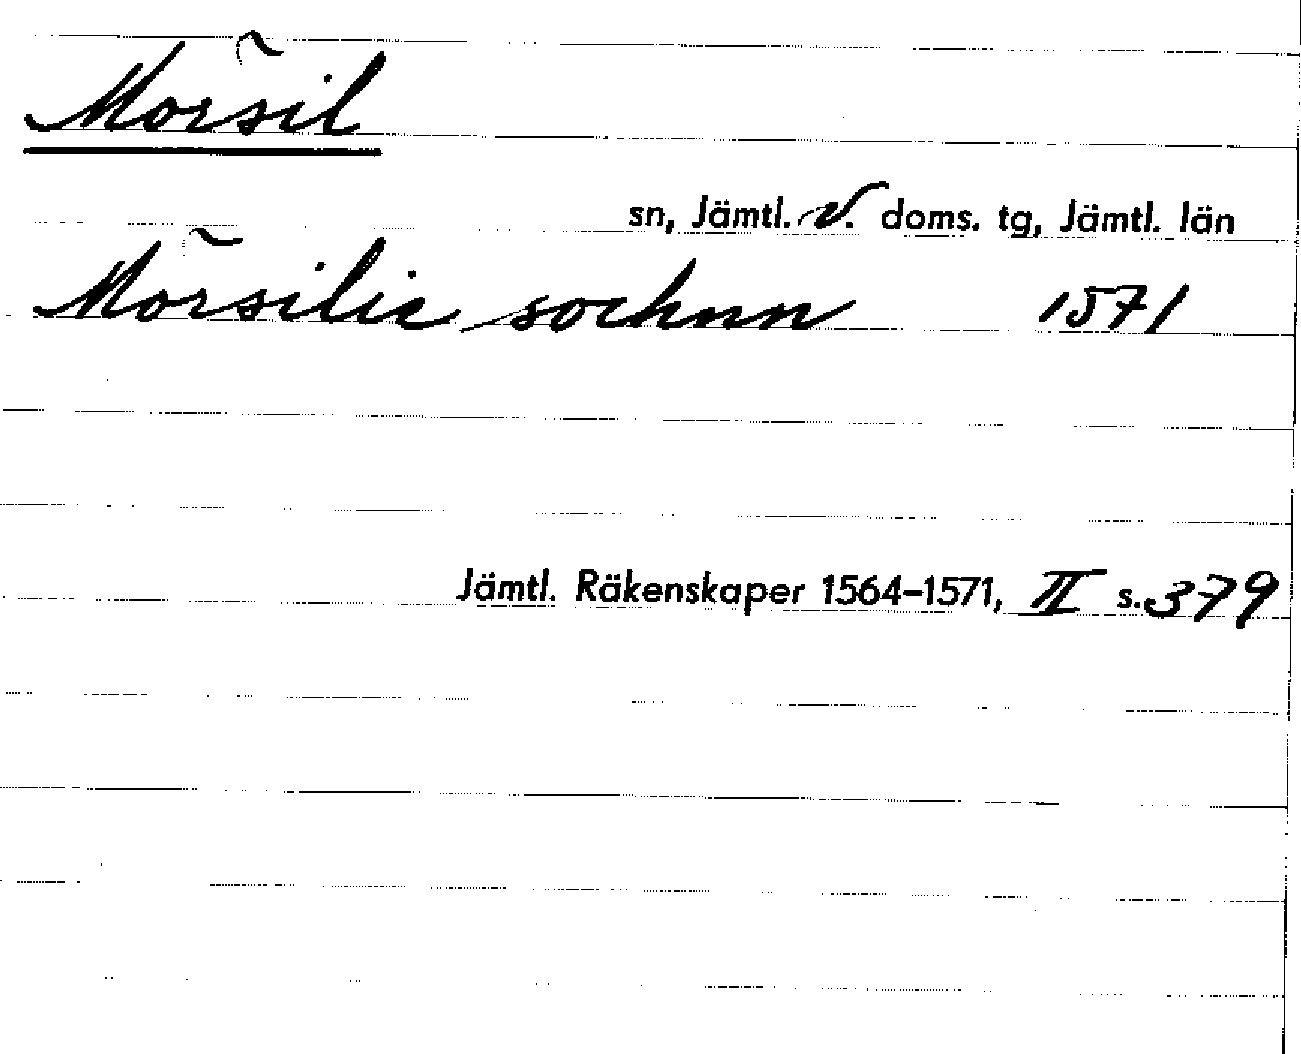 Mörsil
sn, Jämtl. v. doms. tg, Jämtl. län
Mörsilie sochnn 1571
Jämtl. Räkenskaper 1564–1571, II s. 379